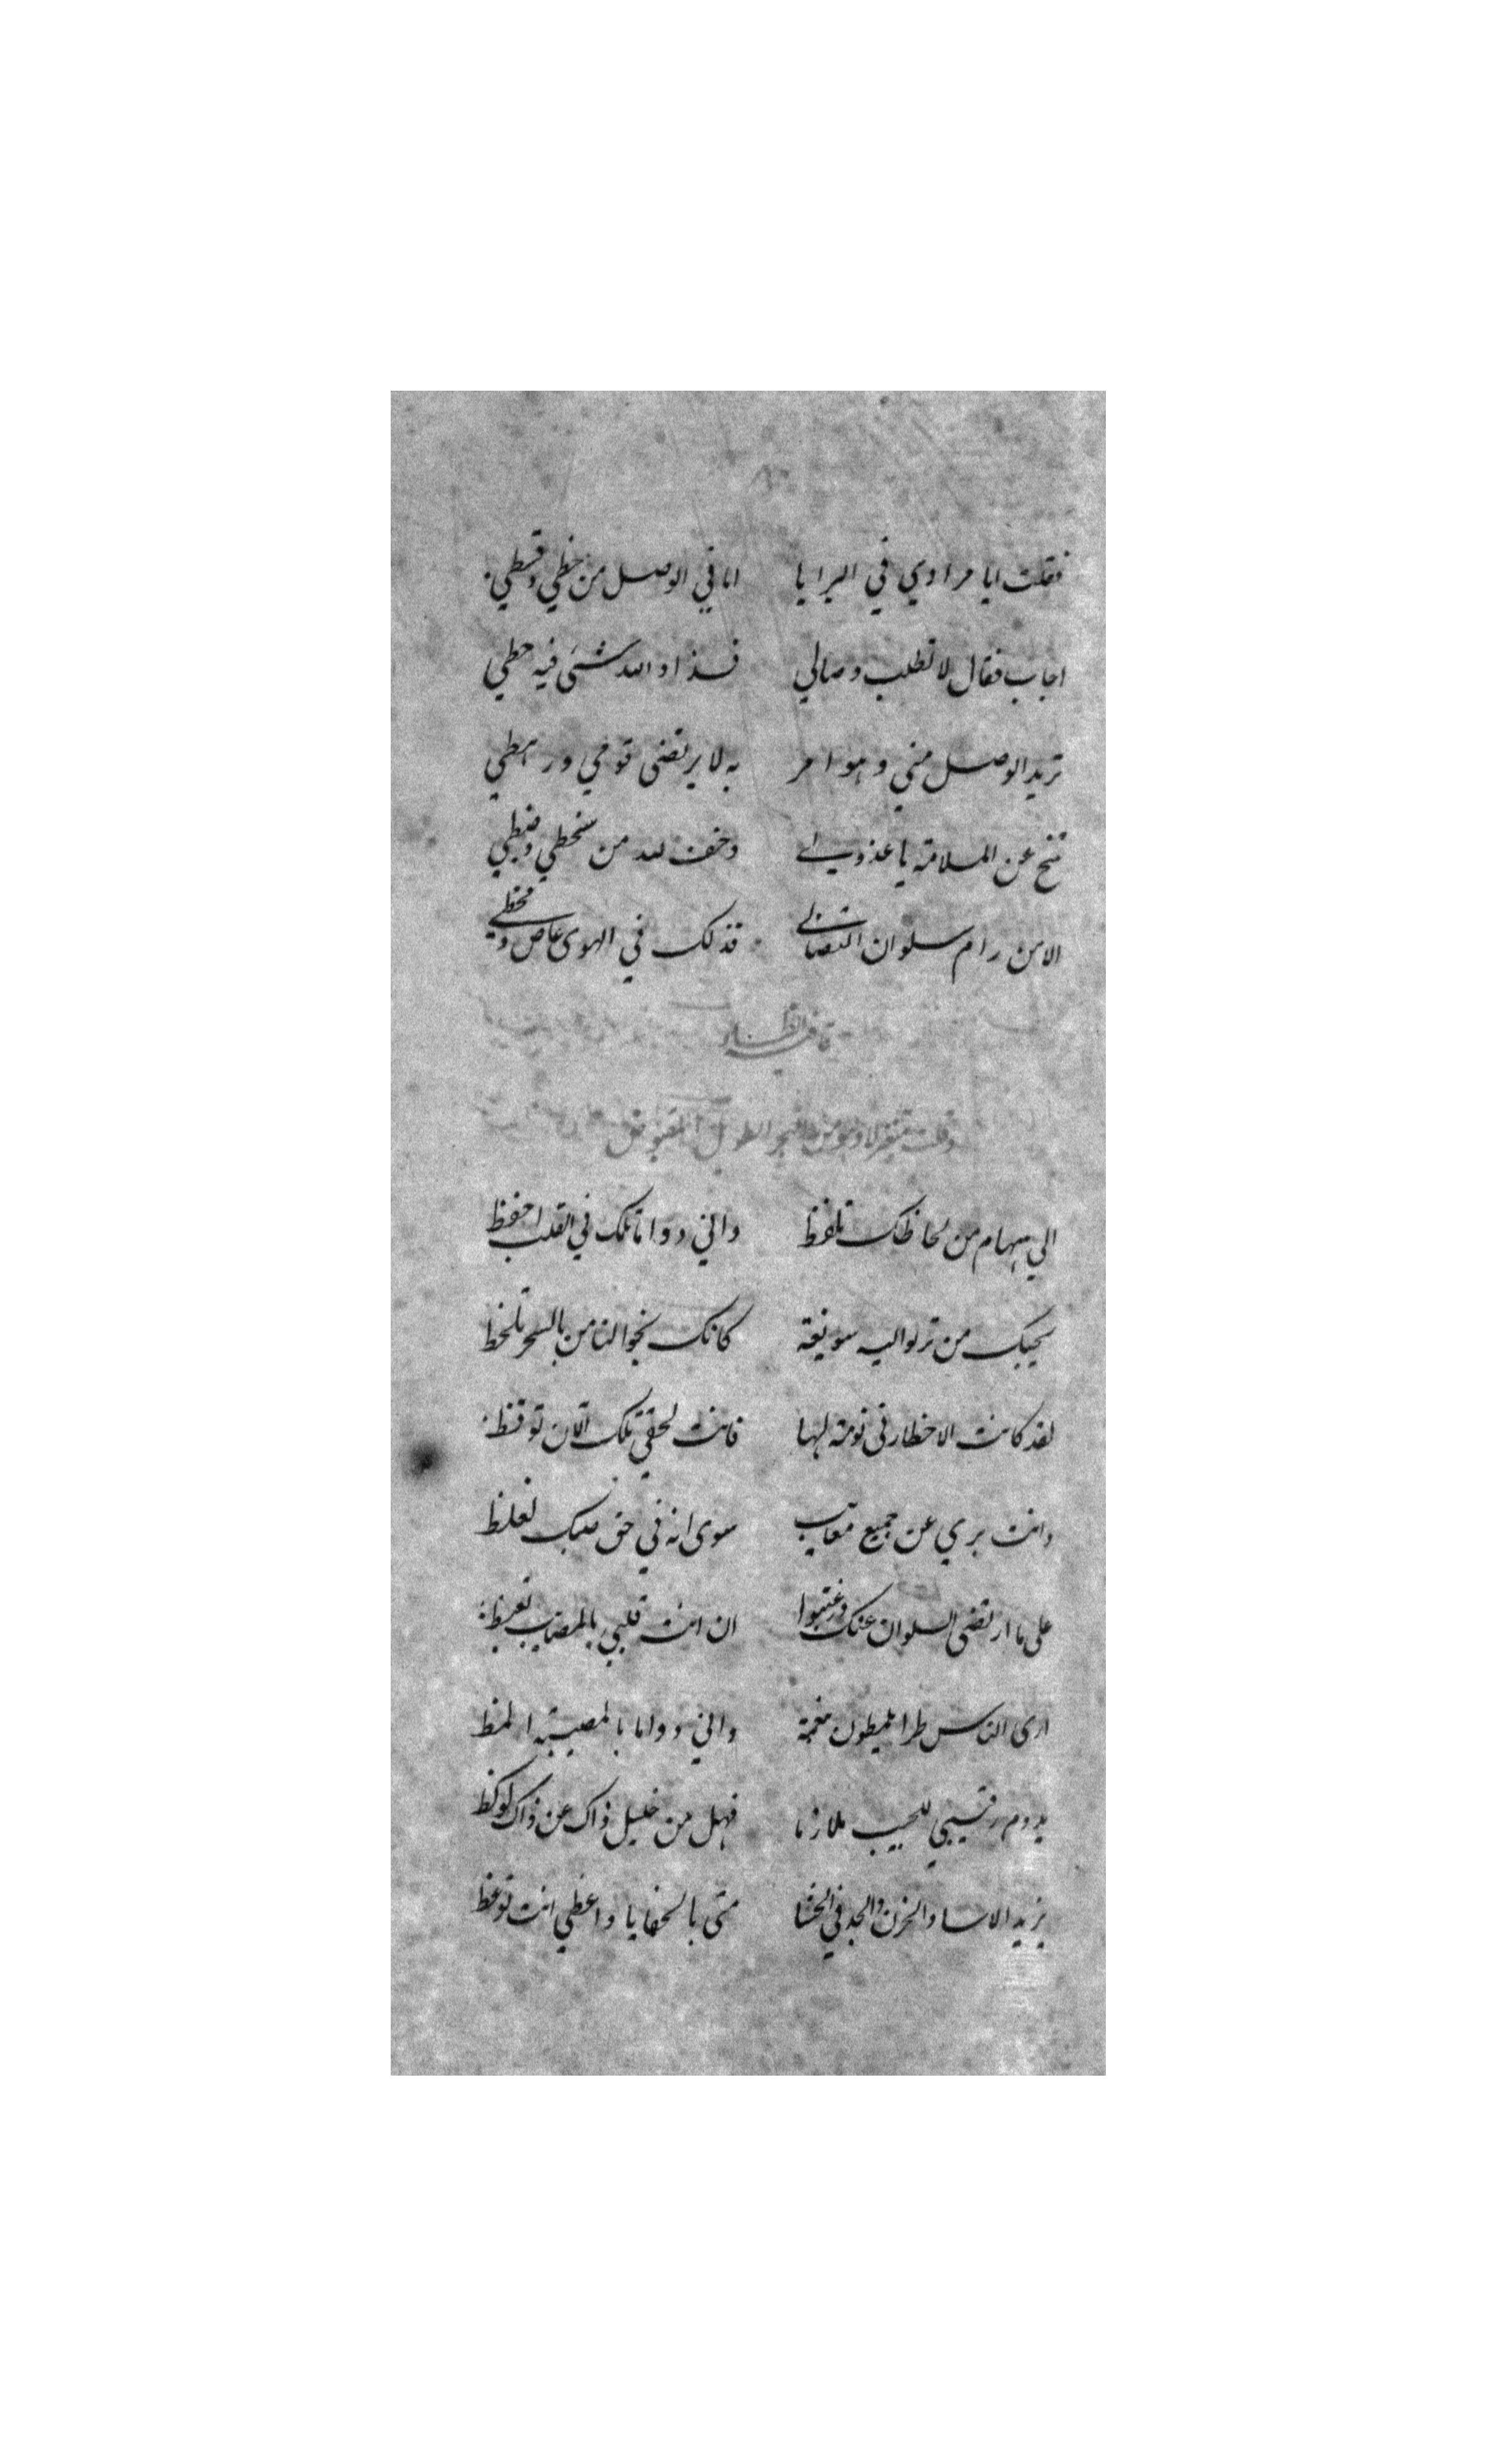 فقلت ايا مرادي في البرايا اما في الوصل من حظي وقسطي
اجاب فقال لا تطلب وصالي فذا والله شئ فيه حطي
تريد الوصل مني وهو امر به لا يرتضى قومي ورهطي
تنح عن الملامة يا عذولي وخف لله من سخطي وضبطي
الا من رام سلوان التصابي فذلك في الهوى عاص ومخطي
قافية الظاء
وقلت متغزلا وهو من البحر الطويل المقبوض
الي سهام من لحاظك تلفظ واني دواما تلك في القلب احفظ
يحبك من ترنو اليه سويعة كانك نحو الناس بالسحر تلحظ
لقد كانت الاخطار في نومة لها فانت لحقي تلك الآن توقظ
وانت بري عن جميع معايب سوى انه في حق صبك تغلظ
على ما ارتضى السلوان عنك ان انت قلبي بالمصايب تغيظ
ارى الناس طرا يلمظون بنعمة واني دواما بالمصيبة المظ
يدوم رقيبي للحبيب ملازما فهل من خليل ذاك عن ذاك يوكظ
يزيد الاسا والحزن والوجد في الحشا متى بالخفايا واعظي انت توعظ